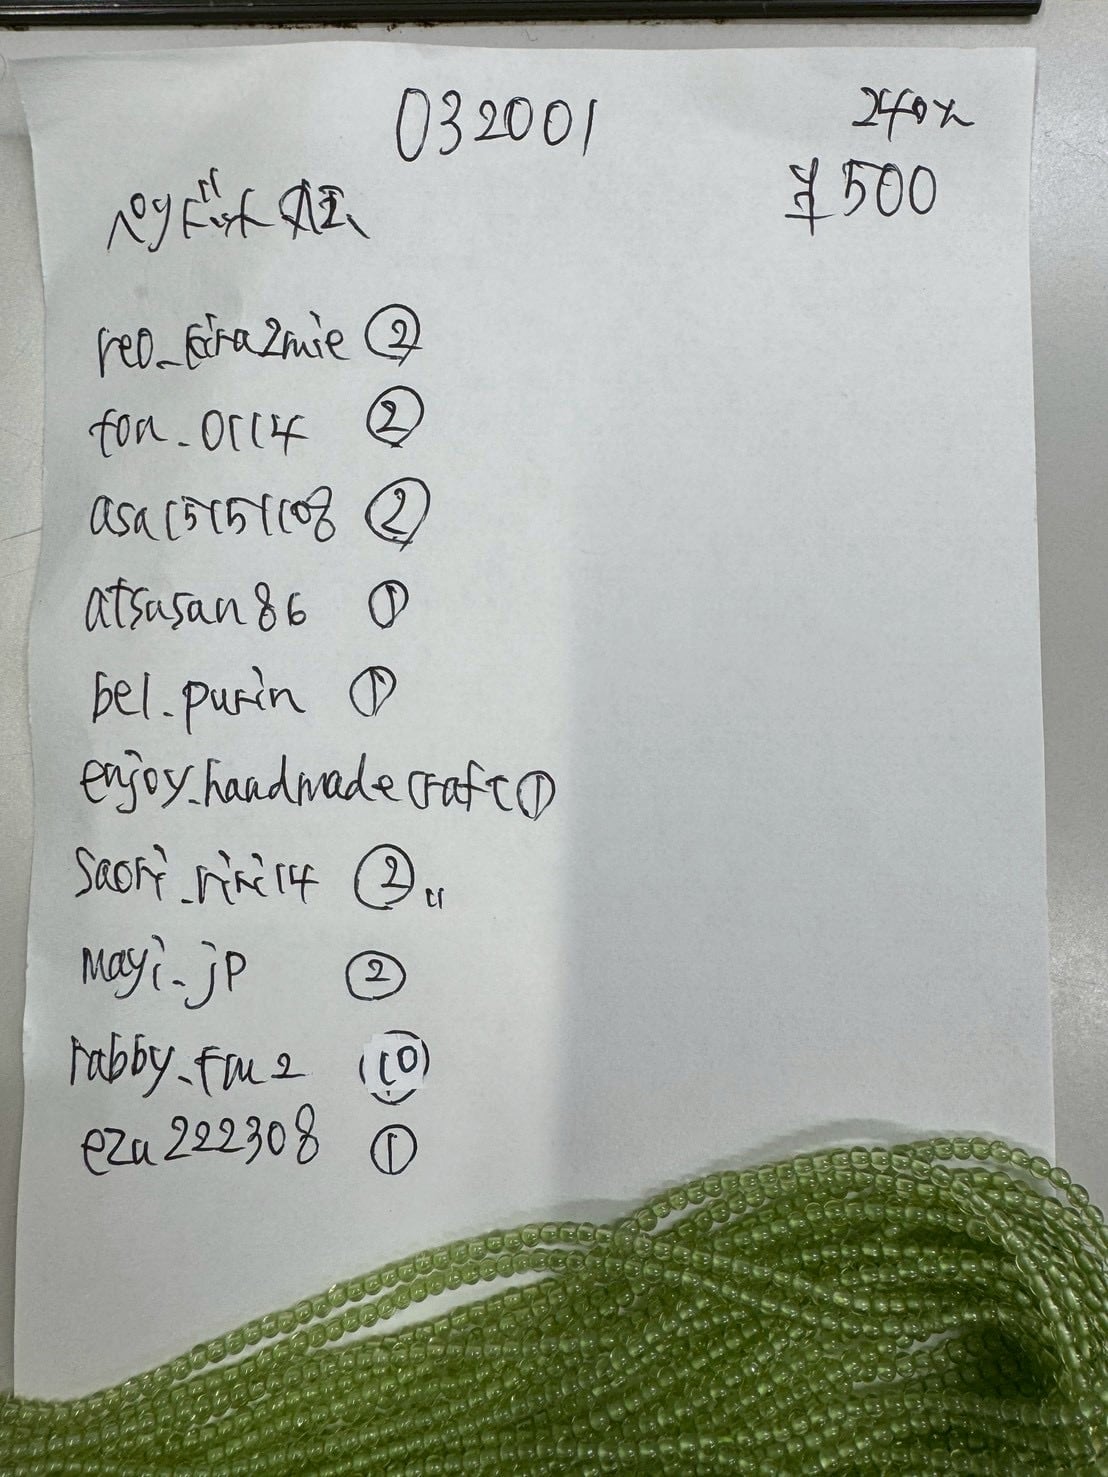 032001
240本
¥500
ペリドット 丸玉
reo_kira2mie ②
ton_0114 ②
asa15151108 ②
atsusan86 ①
bel_purin ①
enjoy_handmadecraft ①
saori_riri14 ②
mayi_jp ②
rabby_fm2 ⑩
ezu222308 ①